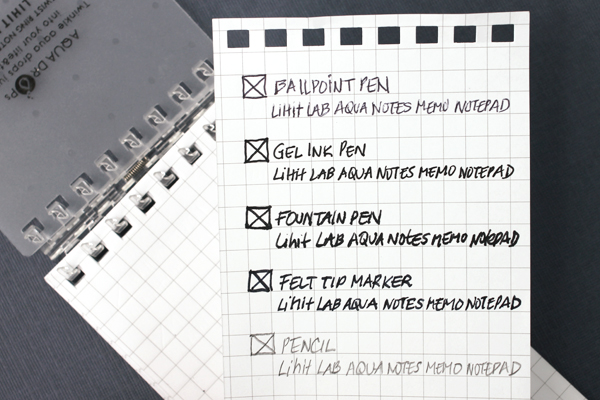 LIHIT
TWIST RING NOTE
Twinkle aqua drops
into your
AQUA DROPs
BALLPOINT PEN
LiHiT LAB AQUA NOTES MEMO NOTEPAD
GEL INK PEN
LiHiT LAB AQUA NOTES MEMO NOTEPAD
FOUNTAIN PEN
LiHiT LAB AQUA NOTES MEMO NOTEPAD
FELT TIP MARKER
LiHiT LAB AQUA NOTES MEMO NOTEPAD
PENCIL
LiHiT LAB AQUA NOTES MEMO NOTEPAD